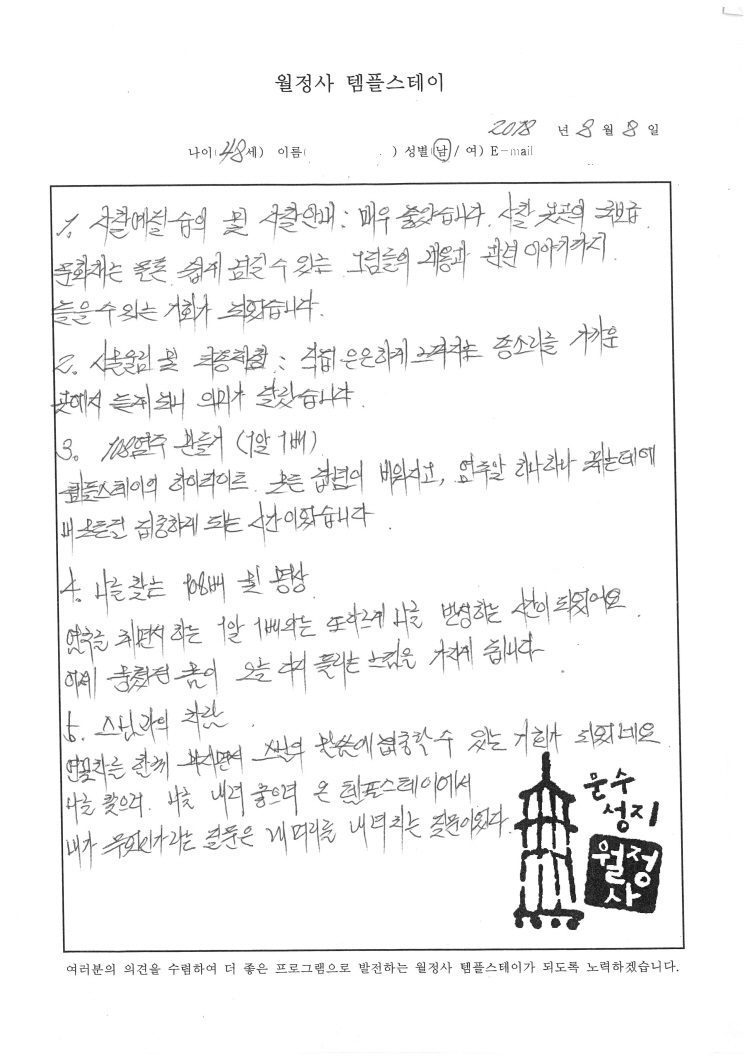 월정사 템플스테이
2018 년 8 월 8 일
나이(48세) 이름( ) 성별(남/여) E-mail
1. 사찰예절 습의 및 사찰안내 : 매우 좋았습니다. 사찰 곳곳의 국보급
문화재는 물론 쉽게 넘길 수 있는 그림들의 내용과 관련 이야기까지
들을 수 있는 기회가 되었습니다.
2. 사물울림 및 타종체험 : 직접 은은하게 퍼지는 종소리를 가까운
곳에서 듣게 되니 의미가 달랐습니다.
3. 108염주 만들기 (1알 1배)
템플스테이의 하이라이트. 모든 잡념이 비워지고, 염주알 하나하나 꿰는데에
내 모든걸 집중하게 되는 시간이었습니다.
4. 나를 찾는 108배 및 명상
염주를 꿰면서 하는 1알 1배와는 또다르게 나를 반성하는 시간이 되었어요.
어제 뭉쳤던 몸이 오늘 다시 풀리는 느낌을 가지게 됩니다.
5. 스님과의 차담.
연꽃차를 함께 마시면서 스님의 말씀에 집중할 수 있는 기회가 되었네요
나를 찾으려, 나를 내려 놓으려 온 템플스테이에서
내가 무엇인가라는 질문은 내 머리를 내려치는 질문이었다.
문수
성지
월정
사
여러분의 의견을 수렴하여 더 좋은 프로그램으로 발전하는 월정사 템플스테이가 되도록 노력하겠습니다.